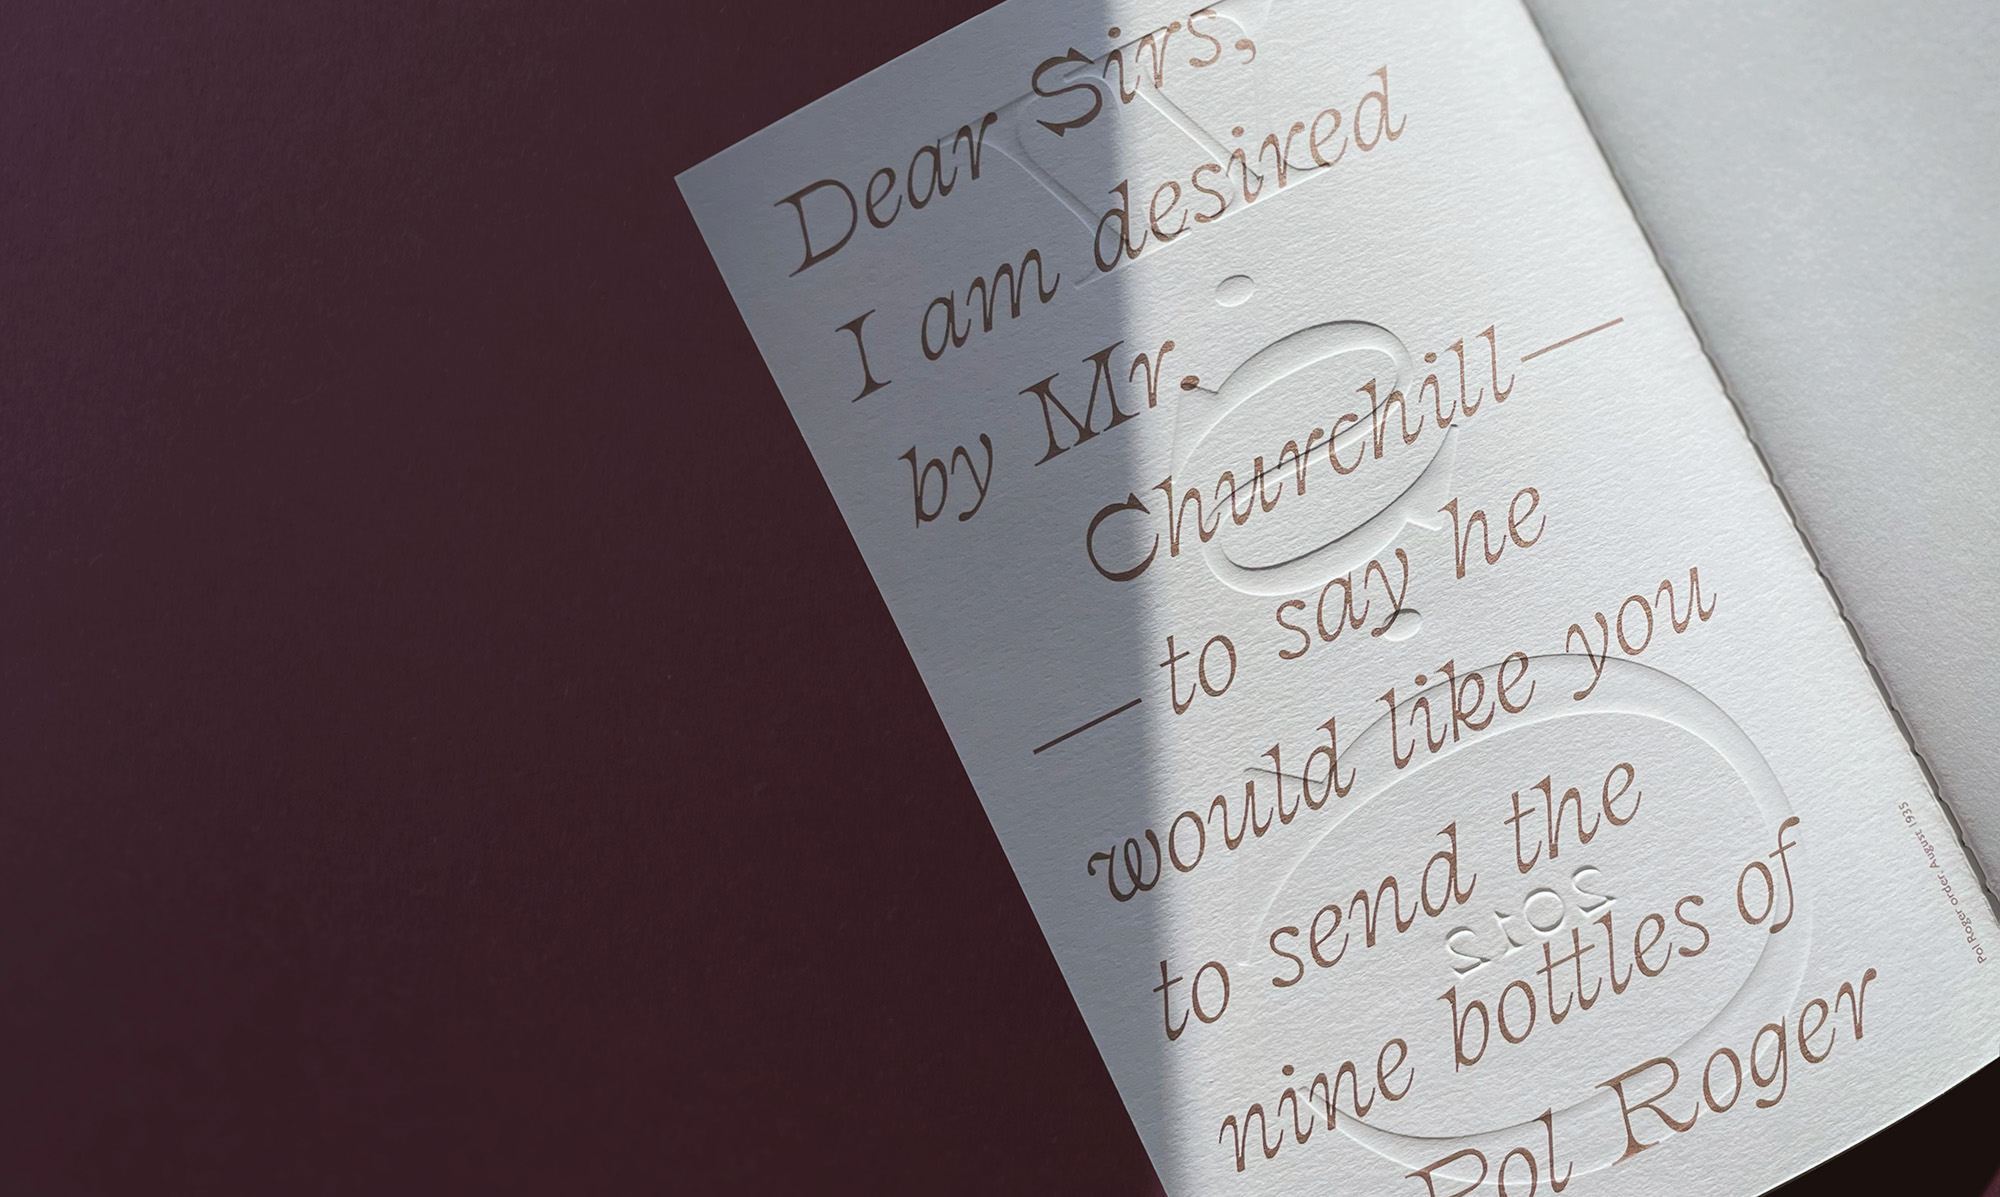 Dear Sirs,
I am desired
by Mr.
Churchill—
—to say he
would like you
to send the
nine bottles of
Pol Roger
Pol Roger order, August 1935
2012